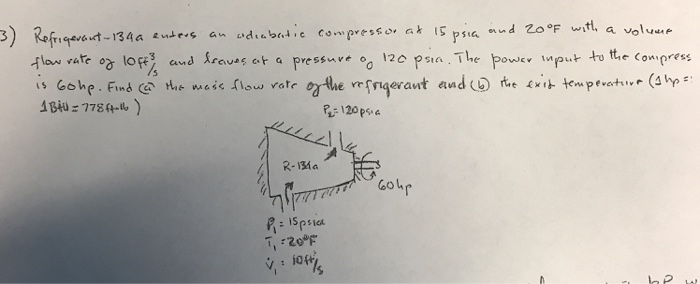 3) Refrigerant-134a enters an adiabatic compressor at 15 psia and 20°F with a volume
flow rate of 10 ft³/s and leaves at a pressure of 120 psia. The power input to the compress
is 60hp. Find (a) the mass flow rate of the refrigerant and (b) the exit temperature (1hp=
1Btu=778ft-lb)
P₂=120psia
R-134a
60hp
P₁=15psia
T₁=20°F
V̇₁=10ft³/s